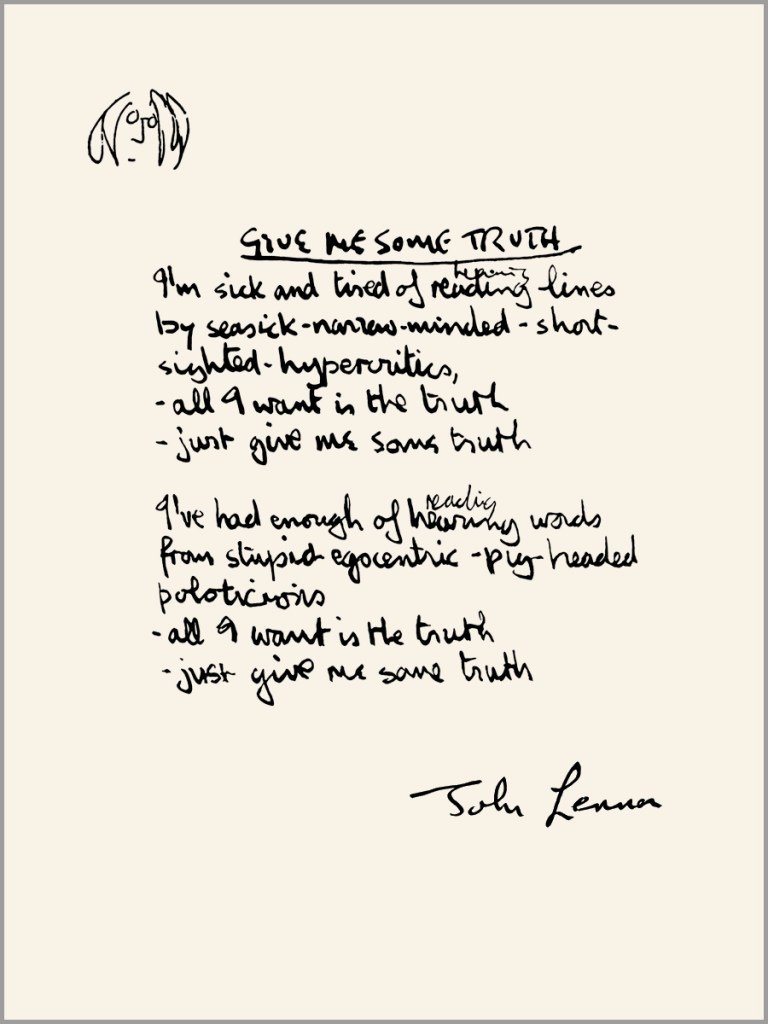 GIVE ME SOME TRUTH
hearing
I'm sick and tired of reading lines
by seasick-narrow-minded-short-
sighted-hypercritics,
-all I want is the truth
-just give me some truth
reading
I've had enough of hearing words
from stupid-egocentric-pig-headed
poloticions
-all I want is the truth
-just give me some truth
John Lennon